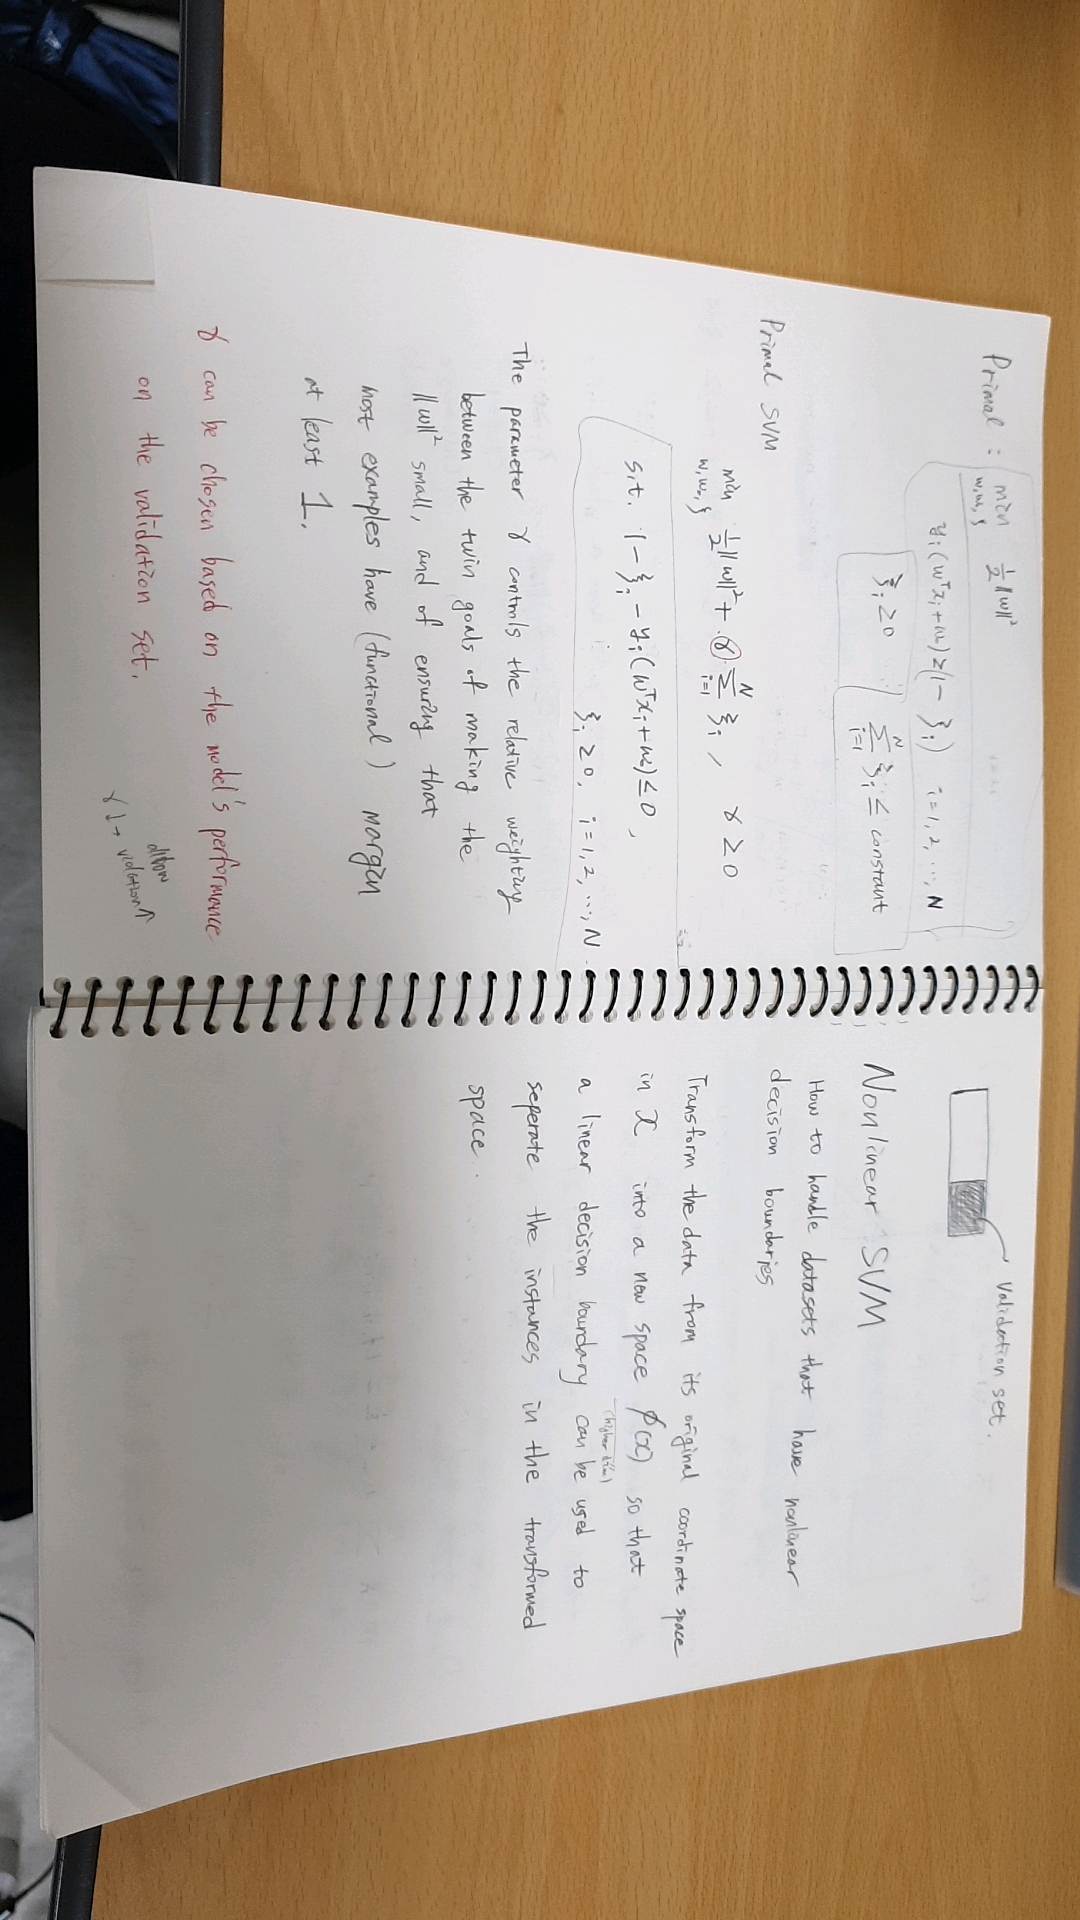 Primal : min 1/2 ||w||²
w, w₀, ξ
yᵢ(wᵀxᵢ+w₀) ≥ (1 - ξᵢ) i=1, 2, ..., N
ξᵢ ≥ 0 Σᵢ₌₁ᴺ ξᵢ ≤ constant
Primal SVM
min 1/2 ||w||² + γ Σᵢ₌₁ᴺ ξᵢ , γ ≥ 0
w, w₀, ξ
s.t. 1 - ξᵢ - yᵢ(wᵀxᵢ+w₀) ≤ 0 ,
ξᵢ ≥ 0, i=1, 2, ..., N
The parameter γ controls the relative weighting
between the twin goals of making the
||w||² small, and of ensuring that
most examples have (functional) margin
at least 1.
γ can be chosen based on the model's performance
on the validation set.
allow
γ↓→ violation↑
Validation set.
Nonlinear SVM
How to handle datasets that have nonlinear
decision boundaries
Transform the data from its original coordinate space
in x into a new space ϕ(x) so that
(higher dim)
a linear decision boundary can be used to
seperate the instances in the transformed
space.